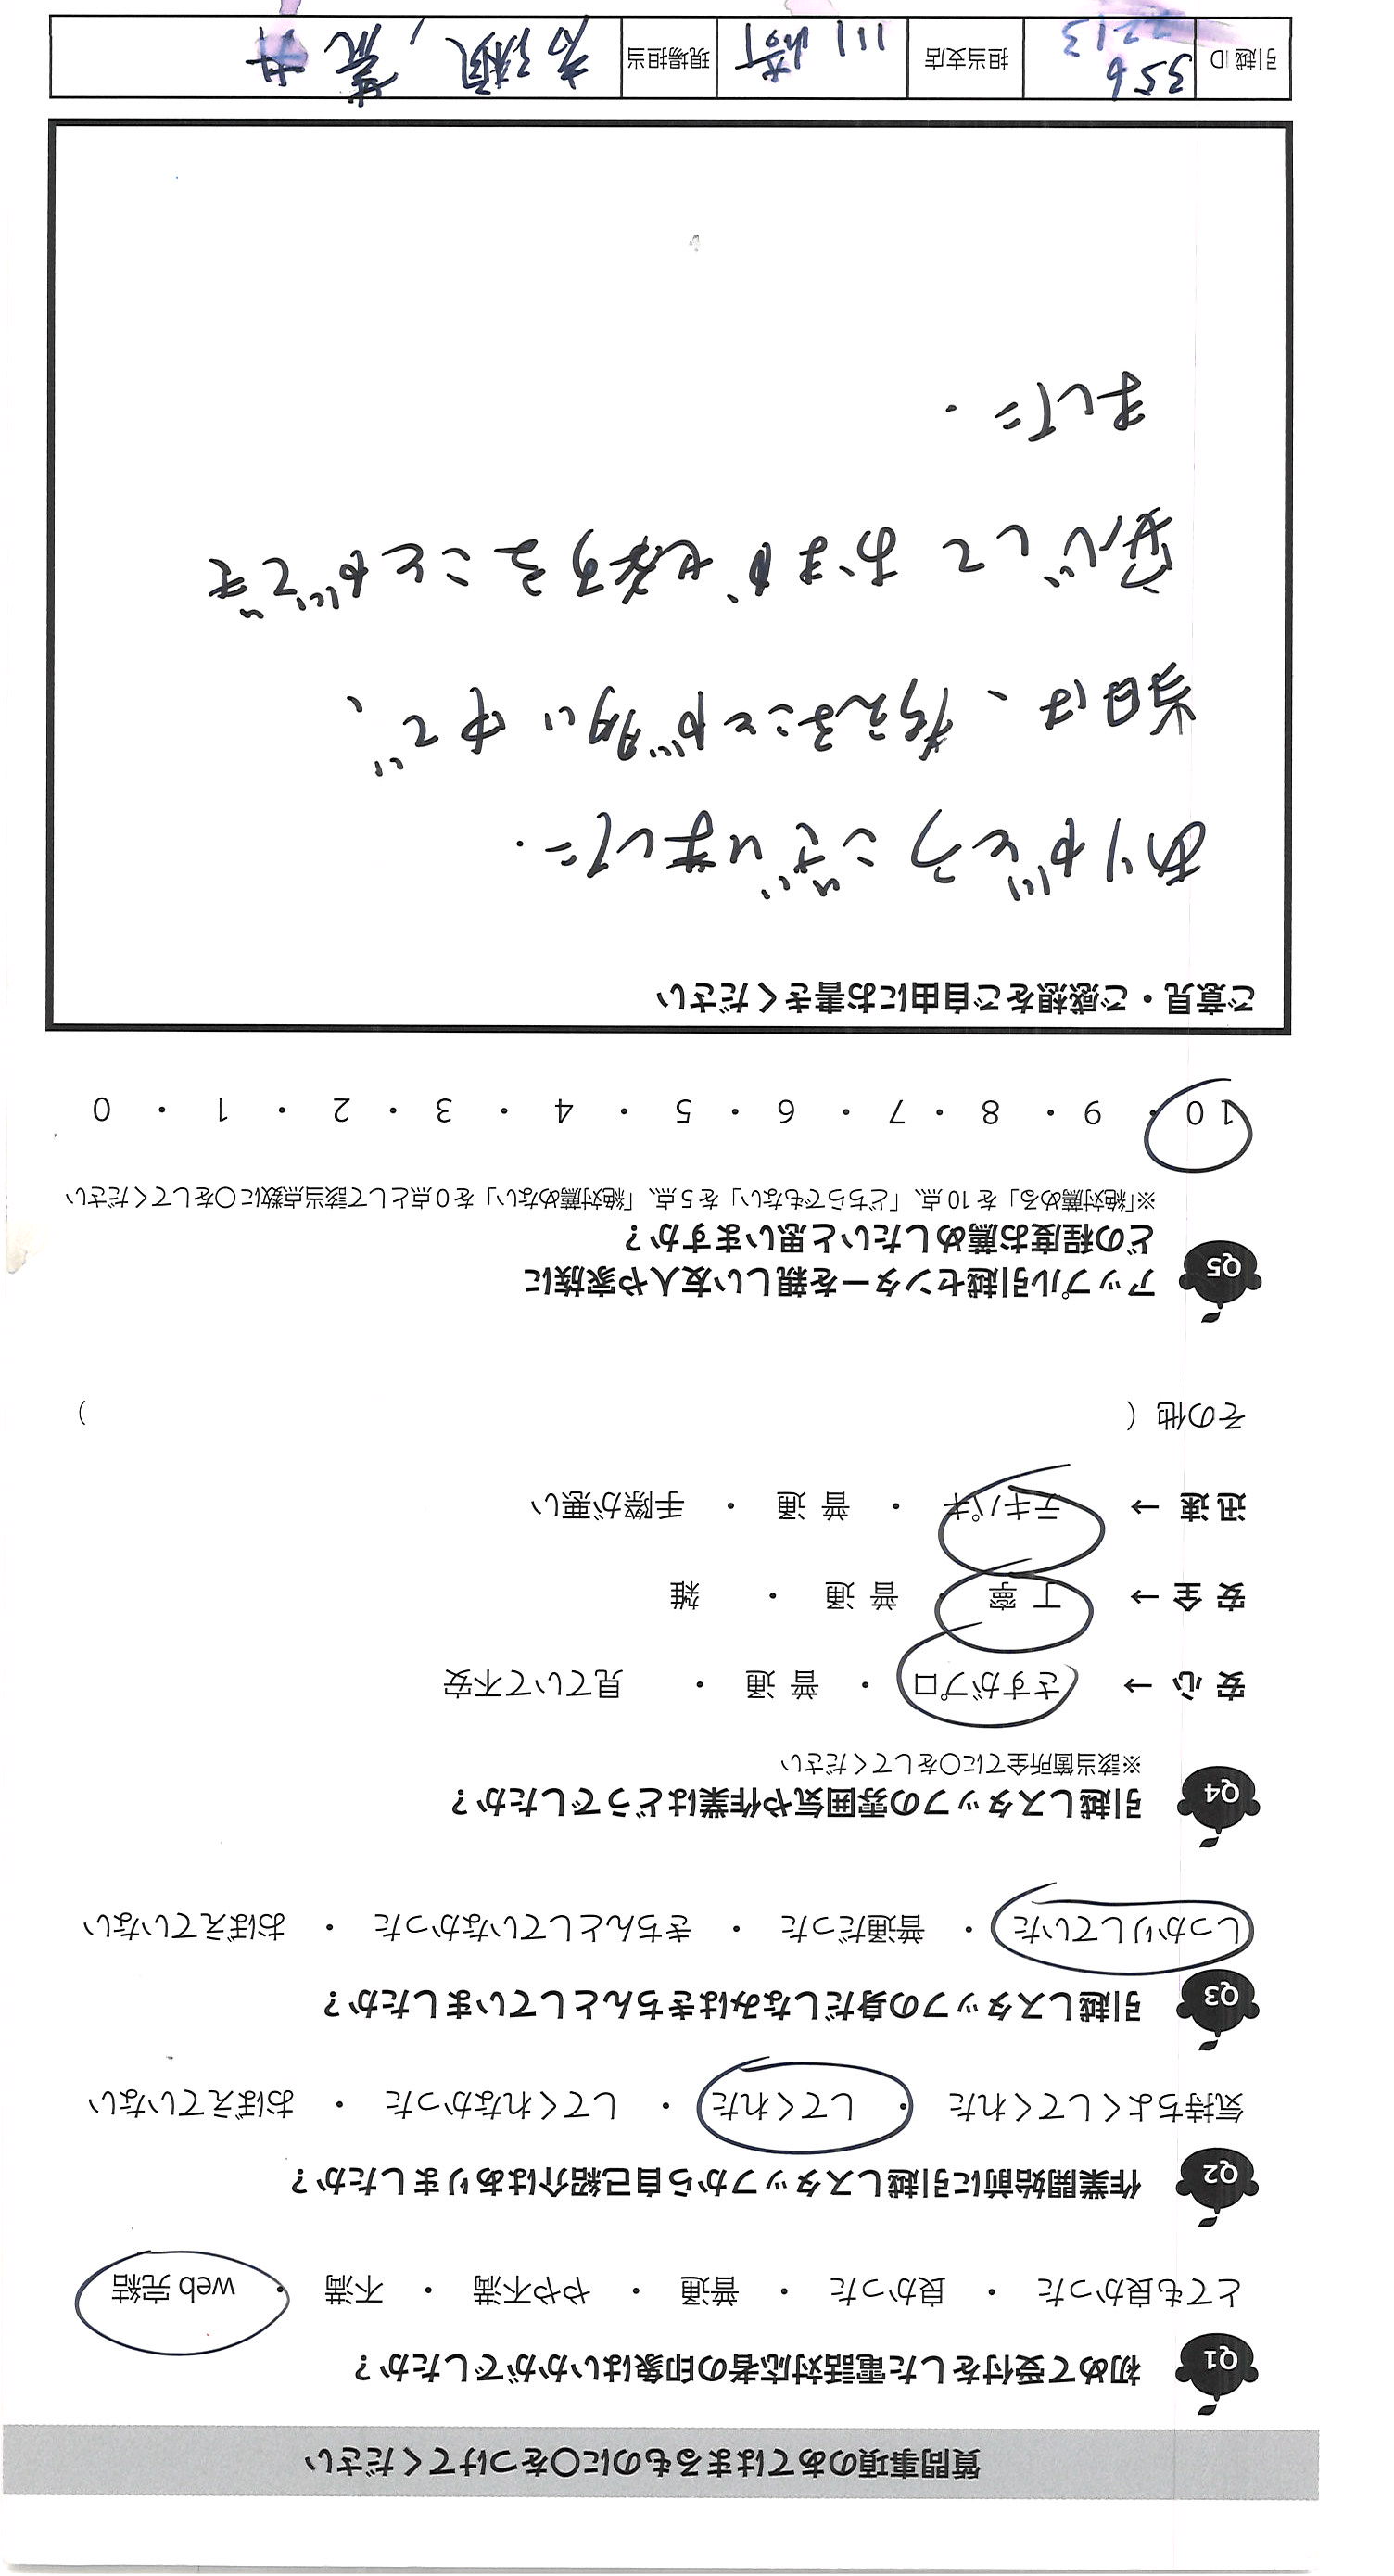 質問事項のあてはまるものに○をつけてください
Q1 初めて受付をした電話対応者の印象はいかがでしたか？
とても良かった ・ 良かった ・ 普通 ・ やや不満 ・ 不満 ・ web 完結
Q2 作業開始前に引越しスタッフから自己紹介はありましたか？
気持ちよくしてくれた ・ してくれた ・ してくれなかった ・ おぼえていない
Q3 引越しスタッフの身だしなみはきちんとしていましたか？
しっかりしていた ・ 普通だった ・ きちんとしていなかった ・ おぼえていない
Q4 引越しスタッフの雰囲気や作業はどうでしたか？
※該当箇所全てに○をしてください
安 心 → さすがプロ ・ 普 通 ・ 見ていて不安
安 全 → 丁 寧 ・ 普 通 ・ 雑
迅 速 → テキパキ ・ 普 通 ・ 手際が悪い
その他（ ）
Q5 アップル引越センターを親しい友人や家族に
どの程度お薦めしたいと思いますか？
※「絶対薦める」を 10 点、「どちらでもない」を 5 点、「絶対薦めない」を 0 点として該当点数に○をしてください
10 ・ 9 ・ 8 ・ 7 ・ 6 ・ 5 ・ 4 ・ 3 ・ 2 ・ 1 ・ 0
ご意見・ご感想をご自由にお書きください
ありがとうございました．
当日は、考えることが多い中で、
安心して おまかせすることができ
ました．
引越 ID 356 担当支店 川崎 現場担当 荒井